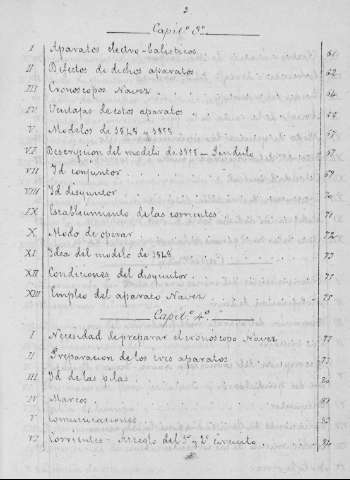 2
Capit.º 3º
I Aparatos electro-balisticos 61
II Defectos de dichos aparatos 62
III Cronoscopos Navez 64
IV Ventajas de estos aparatos
V Modelos de 1848 y 1855
VI Descripcion del modelo de 1855 - Pendulo 67
VII Id conjuntor 69
VIII Id disyuntor
IX Establecimiento de las corrientes 71
X Modo de operar 72
XI Idea del modelo de 1848 73
XII Condiciones del disyuntor 75
XIII Empleo del aparato Navez 75
Capit.º 4º
I Necesidad de preparar el cronoscopo Navez 77
II Preparacion de los tres aparatos
III Id de las pilas
IV Marcos
V Comunicaciones
VI Corrientes - Arreglo del 1º y 2º circuito